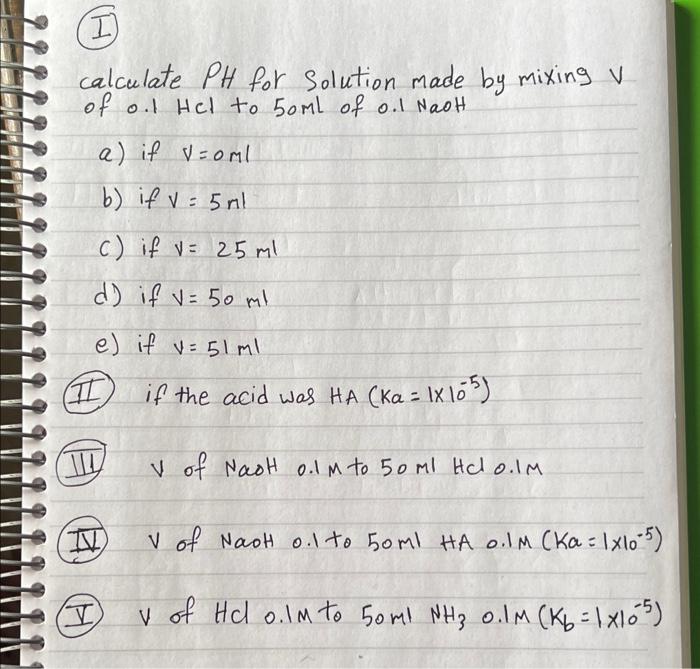 I
calculate PH for Solution made by mixing V
of 0.1 Hcl to 50ml of 0.1 NaoH
a) if V=0ml
b) if V = 5ml
c) if V= 25 ml
d) if V= 50 ml
e) if V= 51ml
II if the acid was HA (Ka = 1x10⁻⁵)
III V of NaoH 0.1 M to 50 ml Hcl 0.1M
IV V of NaoH 0.1 to 50ml HA 0.1M (Ka = 1x10⁻⁵)
V V of Hcl 0.1M to 50ml NH₃ 0.1M (Kb = 1x10⁻⁵)